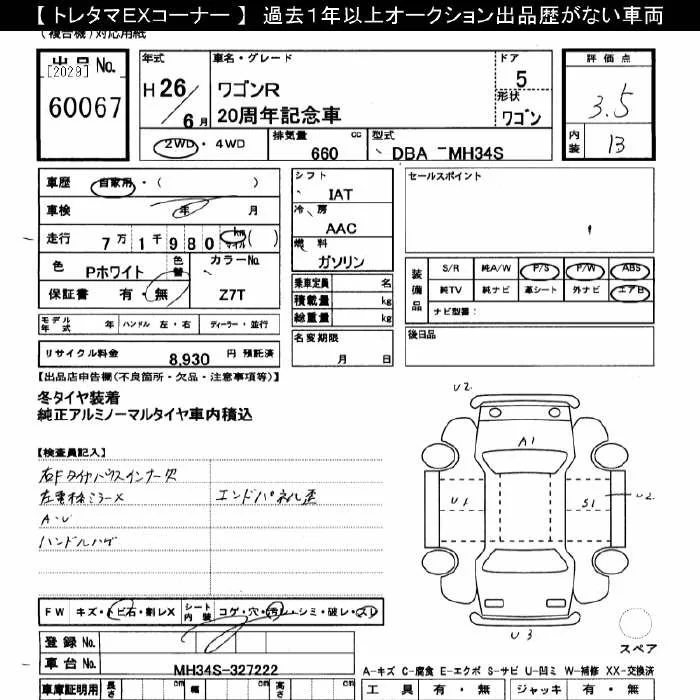 【 トレタマEXコーナー 】 過去1年以上オークション出品歴がない車両
(複合機)対応用紙
出品 No.
[2029]
60067
年式
H 26/6月
車名・グレード
ワゴンR
20周年記念車
ドア
5
形状
ワゴン
評価点
3.5
内装
B
2WD・4WD
排気量
660 cc
型式
DBA -MH34S
車歴
自家用・( )
車検
年 月
走行
7万1千980 km マイル ( )
色
Pホワイト
色替
カラーNo.
Z7T
保証書
有・無
シフト
IAT
冷房
AAC
燃料
ガソリン
乗車定員 名
積載量 kg
総重量 kg
セールスポイント
装備品
S/R 純A/W P/S P/W ABS
純TV 純ナビ 革シート 外ナビ エアB
ナビ型番:
モデル年式 年 ハンドル 左・右 ディーラー・並行
リサイクル料金 8,930 円 預託済
名変期限
月 日
後日品
【出品店申告欄(不良箇所・欠品・注意事項等)】
冬タイヤ装着
純正アルミノーマルタイヤ車内積込
【検査員記入】
右Fタイヤハウスインナー欠
左電格ミラーX
エンドパネル歪
A・U
ハンドルハゲ
U2
A1
U1
S1
U2
U3
スペア
FW キズ・トビ石・割レX
シート内装 コゲ・穴・汚レ・シミ・破レ・スレ
登録 No.
車台 No. MH34S-327222
A-キズ C-腐食 E-エクボ S-サビ U-凹ミ W-補修 XX-交換済
車庫証明用 長さ cm 幅 cm 高さ cm
工具 有・無 ジャッキ 有・無